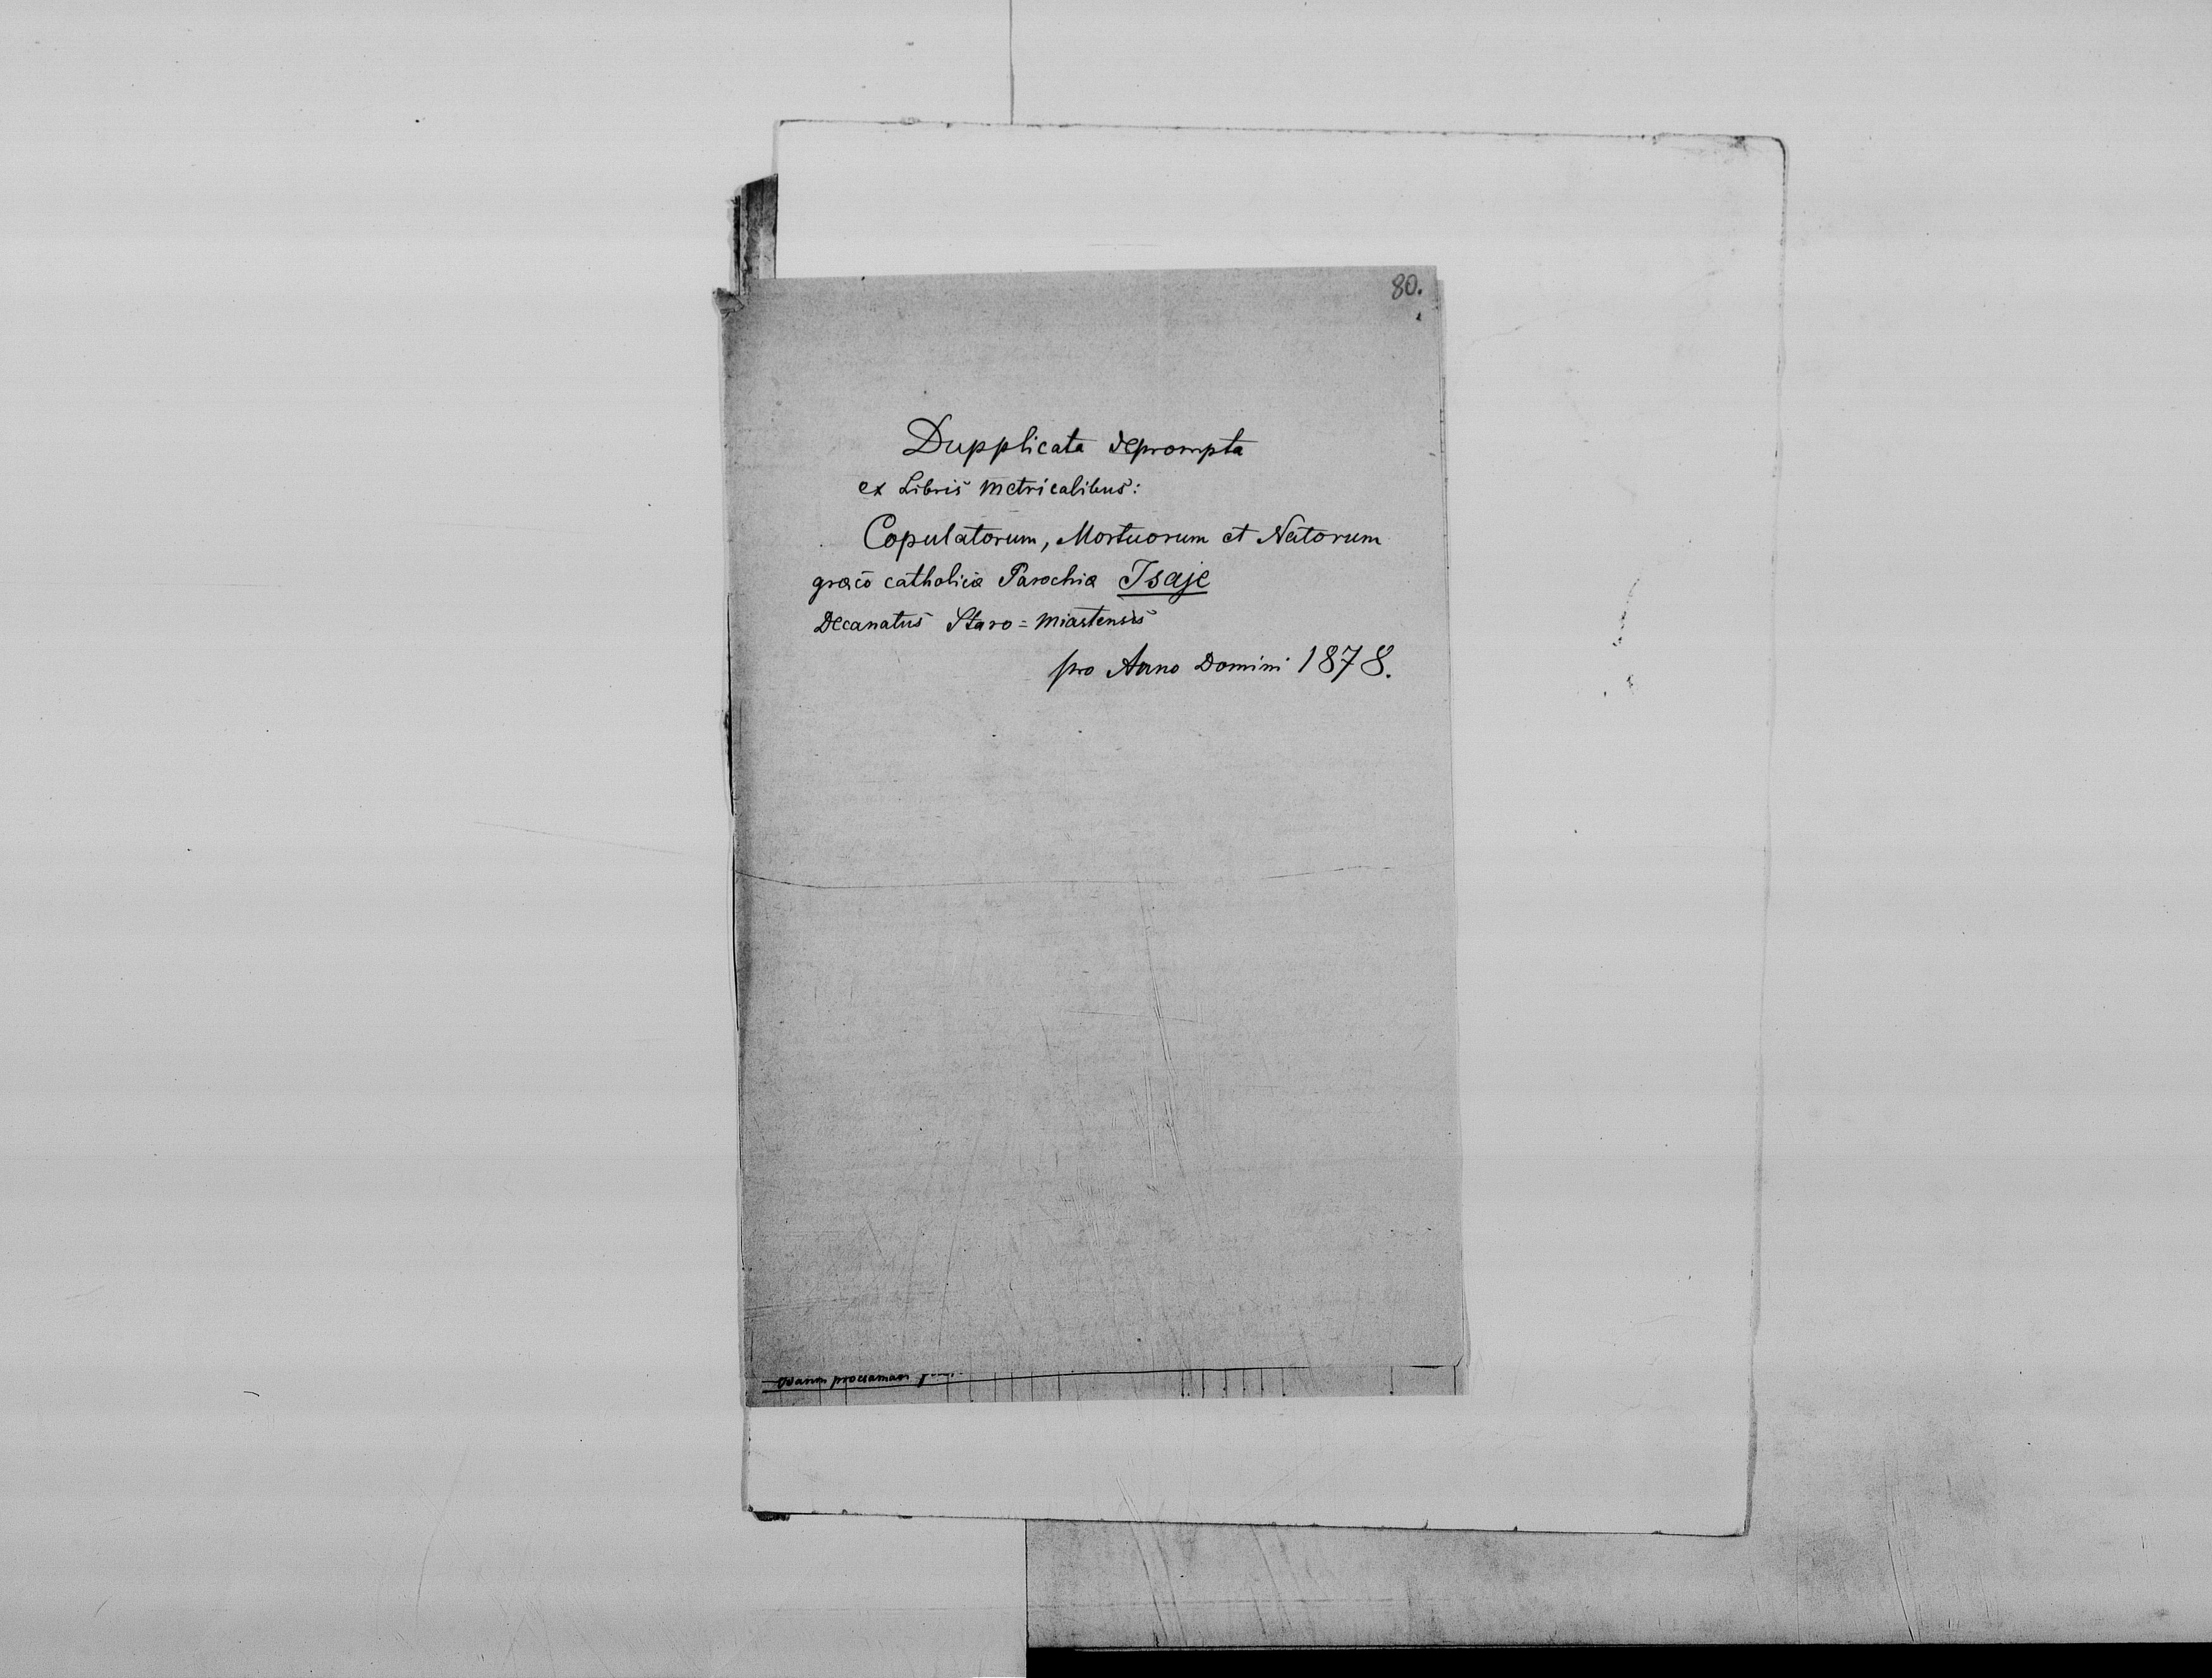 80.
Dupplicata deprompta
ex Libris metricalibus:
Copulatorum, Mortuorum et Natorum
græco catholicæ Parochiæ Isaje
Decanatus Staro=miastensis
pro Anno Domini 1878.
proclamam